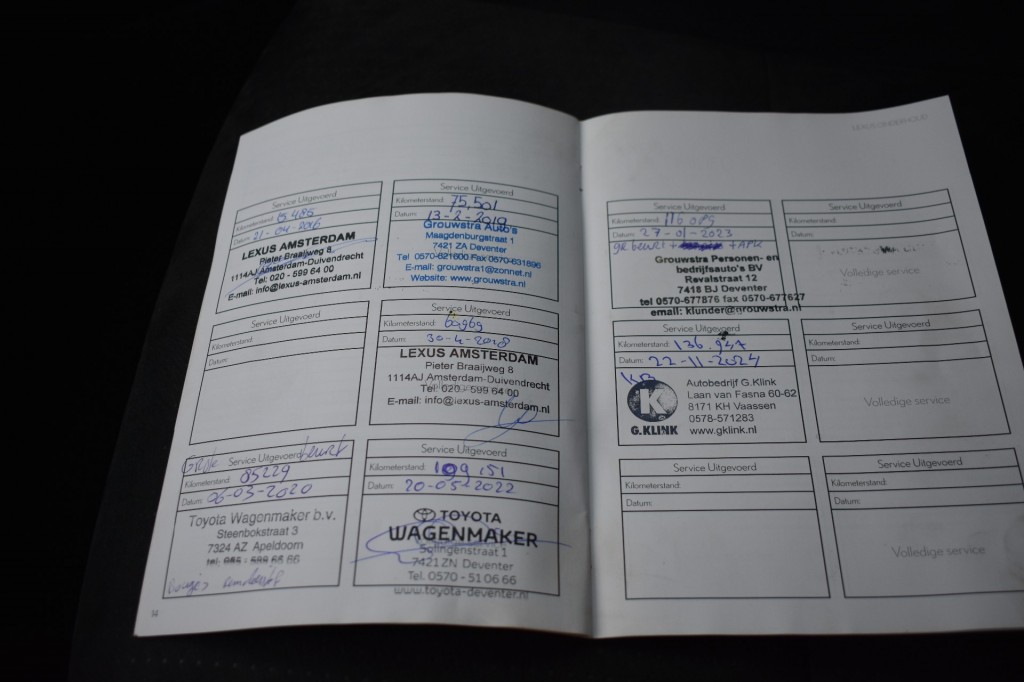 Service Uitgevoerd
Kilometerstand:
Datum: 21-04-2016
LEXUS AMSTERDAM
Pieter Braaijweg 8
1114AJ Amsterdam-Duivendrecht
Tel: 020 - 599 64 00
E-mail: info@lexus-amsterdam.nl
Service Uitgevoerd
Kilometerstand: 75,501
Datum: 13-2-2019
Grouwstra Auto's
Maagdenburgstraat 1
7421 ZA Deventer
Tel 0570-621600 Fax 0570-631896
E-mail: grouwstra1@zonnet.nl
Website: www.grouwstra.nl
Service Uitgevoerd
Kilometerstand:
Datum:
Service Uitgevoerd
Kilometerstand: 60969
Datum: 30-4-2018
LEXUS AMSTERDAM
Pieter Braaijweg 8
1114AJ Amsterdam-Duivendrecht
Tel: 020 - 599 64 00
E-mail: info@lexus-amsterdam.nl
Grote beurt
Service Uitgevoerd
Kilometerstand: 85229
Datum: 06-03-2020
Toyota Wagenmaker b.v.
Steenbokstraat 3
7324 AZ Apeldoorn
Service Uitgevoerd
Kilometerstand: 109,151
Datum: 20-05-2022
TOYOTA
WAGENMAKER
Solingenstraat 1
7421 ZN Deventer
Tel. 0570 - 51 06 66
www.toyota-deventer.nl
14
Service Uitgevoerd
Kilometerstand: 116 085
Datum: 27-01-2023
gr beurt + + APK
Grouwstra Personen- en
bedrijfsauto's BV
Revalstraat 12
7418 BJ Deventer
tel 0570-677876 fax 0570-677627
email: klunder@grouwstra.nl
Service Uitgevoerd
Kilometerstand:
Datum:
Volledige service
Service Uitgevoerd
Kilometerstand: 136.947
Datum: 22-11-2024
KB
K
G.KLINK
Autobedrijf G.Klink
Laan van Fasna 60-62
8171 KH Vaassen
0578-571283
www.gklink.nl
Service Uitgevoerd
Kilometerstand:
Datum:
Volledige service
Service Uitgevoerd
Kilometerstand:
Datum:
Service Uitgevoerd
Kilometerstand:
Datum:
Volledige service